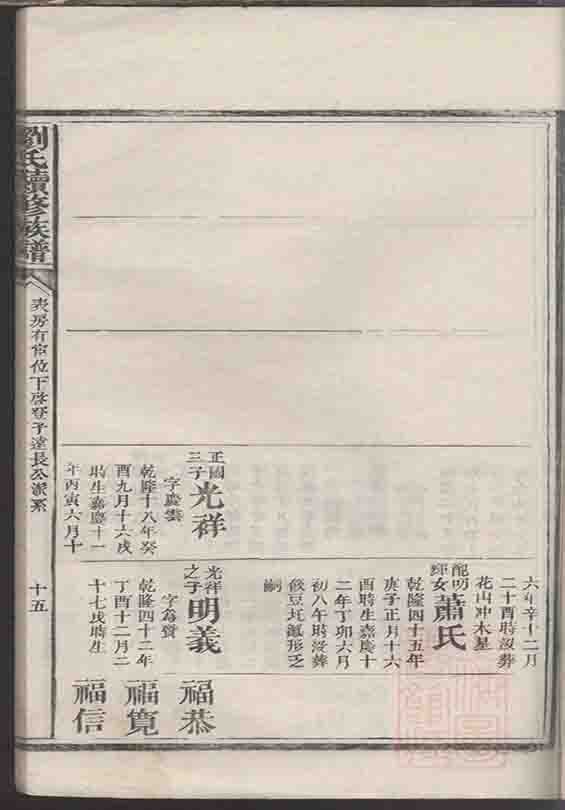 劉氏續修族譜
表房有宦位下啓登子達長公派系
十五
正國三子
光祥
字慶雲
乾隆十八年癸
酉九月十六戌
時生嘉慶十一
年丙寅六月十
六年辛十二月
二十酉時沒葬
花山冲木星
配明輝女
蕭氏
乾隆四十五年
庚子正月十六
酉時生嘉慶十
二年丁卯六月
初八午時沒葬
飯豆圫艇形乏
嗣
光祥之子
明義
字為質
乾隆四十二年
丁酉十二月二
十七戌時生
福恭
福寬
福信